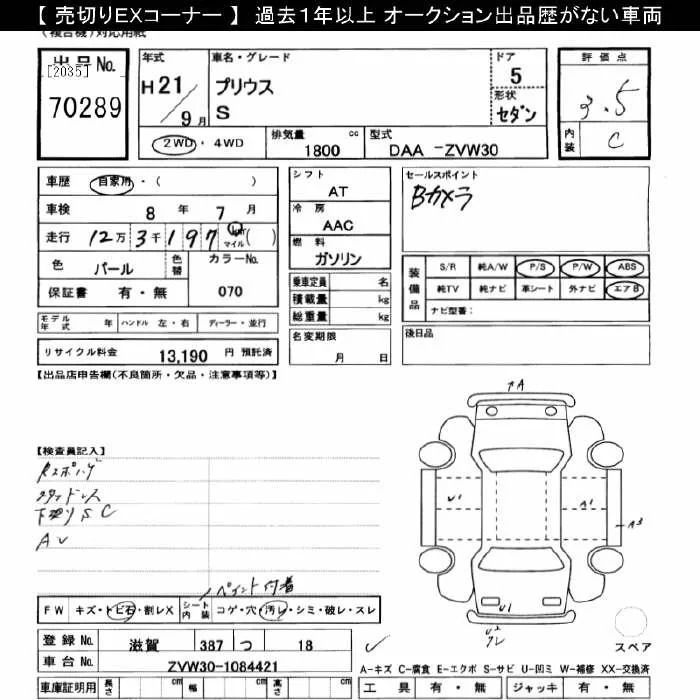 【 売切りEXコーナー 】 過去１年以上 オークション出品歴がない車両
(複合機)対応用紙
出品No.
[2035]
70289
年式
H 21
9 月
車名・グレード
プリウス
S
ドア
5
形状
セダン
評価点
3.5
内装
C
2WD ・ 4WD
排気量 cc
1800
型式
DAA -ZVW30
車歴 自家用 ・ ( )
車検 8 年 7 月
走行 12万 3千 197 km マイル ( )
色 パール 色替 カラーNo.
保証書 有・無 070
シフト
AT
冷房
AAC
燃料
ガソリン
乗車定員 名
積載量 kg
総重量 kg
名変期限
月 日
セールスポイント
Bカメラ
装備品
S/R 純A/W P/S P/W ABS
純TV 純ナビ 革シート 外ナビ エアB
ナビ型番：
後日品
モデル年式 年 ハンドル 左・右 ディーラー・並行
リサイクル料金 13,190 円 預託済
【出品店申告欄(不良箇所・欠品・注意事項等)】
【検査員記入】
下廻りSC
AU
ペイント付着
FW キズ・トビ石・割レX シート内装 コゲ・穴・汚レ・シミ・破レ・スレ
登録No. 滋賀 387 つ 18
車台No. ZVW30-1084421
車庫証明用 長さ cm 幅 cm 高さ cm
A
U1
A1
A3
U1
U2
スペア
A-キズ C-腐食 E-エクボ S-サビ U-凹ミ W-補修 XX-交換済
工具 有・無 ジャッキ 有・無